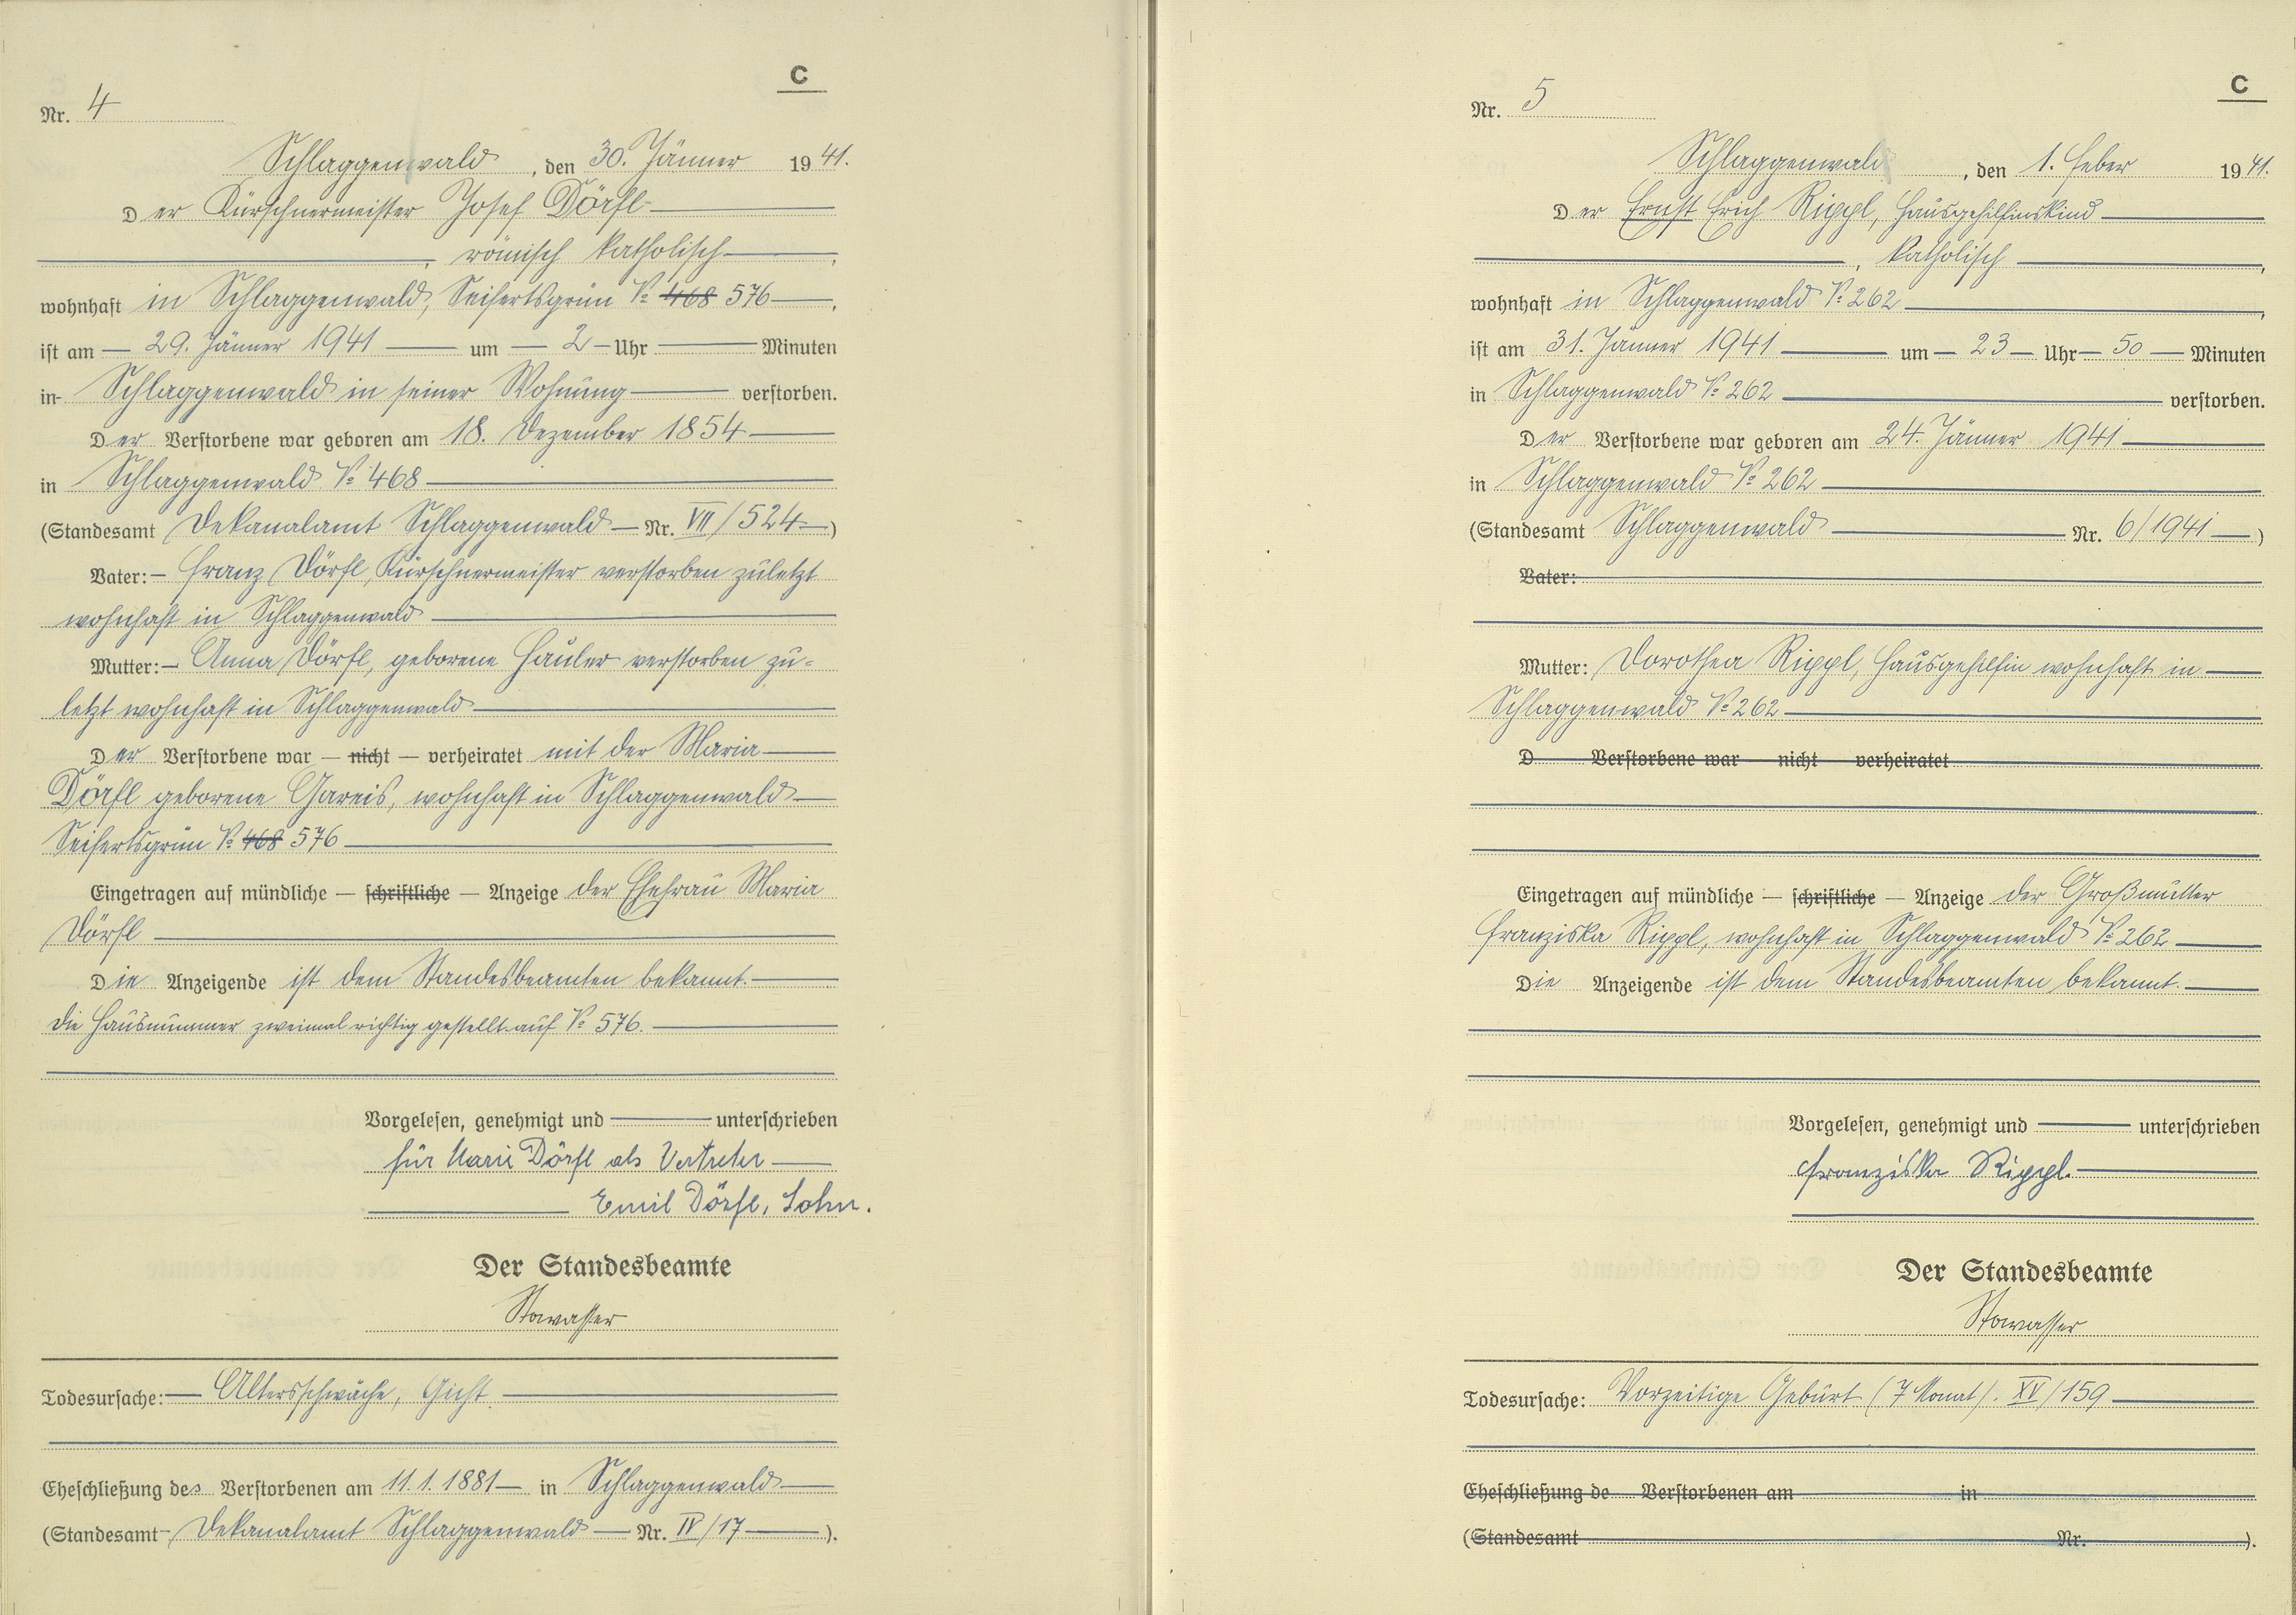 C
Nr. 4
Schlaggenwald, den 30. Jänner 1941.
Der Kürschnermeister Josef Dörfl
, römisch katholisch,
wohnhaft in Schlaggenwald, Seifertsgrün № 468 576,
ist am 29. Jänner 1941 um 2 Uhr Minuten
in Schlaggenwald in seiner Wohnung verstorben.
Der Verstorbene war geboren am 18. Dezember 1854
in Schlaggenwald № 468
(Standesamt Dekanalamt Schlaggenwald Nr. VII/524)
Vater: Franz Dörfl, Kürschnermeister verstorben zuletzt
wohnhaft in Schlaggenwald
Mutter: Anna Dörfl, geborene Häuler verstorben zu=
letzt wohnhaft in Schlaggenwald
Der Verstorbene war — nicht — verheiratet mit der Maria
Dörfl geborene Gareis, wohnhaft in Schlaggenwald
Seifertsgrün № 468 576
Eingetragen auf mündliche — schriftliche — Anzeige der Ehefrau Maria
Dörfl
Die Anzeigende ist dem Standesbeamten bekannt.
Die Hausnummer zweimal richtig gestellt auf № 576.
Vorgelesen, genehmigt und unterschrieben
für Marie Dörfl als Vertreter
Emil Dörfl, Sohn.
Der Standesbeamte
Stowasser
Todesursache: Altersschwäche, Gicht
Eheschließung des Verstorbenen am 11. 1. 1881 in Schlaggenwald
(Standesamt Dekanalamt Schlaggenwald Nr. IV/17).
C
Nr. 5
Schlaggenwald, den 1. Feber 1941.
Der Ernst Erich Rippl, Hausgehilfinskind
, katholisch,
wohnhaft in Schlaggenwald № 262,
ist am 31. Jänner 1941 um 23 Uhr 50 Minuten
in Schlaggenwald № 262 verstorben.
Der Verstorbene war geboren am 24. Jänner 1941
in Schlaggenwald № 262
(Standesamt Schlaggenwald Nr. 6/1941)
Vater:
Mutter: Dorothea Rippl, Hausgehilfin wohnhaft in
Schlaggenwald № 262
D Verstorbene war — nicht — verheiratet
Eingetragen auf mündliche — schriftliche — Anzeige der Großmutter
Franziska Rippl, wohnhaft in Schlaggenwald № 262
Die Anzeigende ist dem Standesbeamten bekannt.
Vorgelesen, genehmigt und unterschrieben
Franziska Rippl.
Der Standesbeamte
Stowasser
Todesursache: Vorzeitige Geburt (7 Monat). XV/159
Eheschließung de Verstorbenen am in
(Standesamt Nr. ).